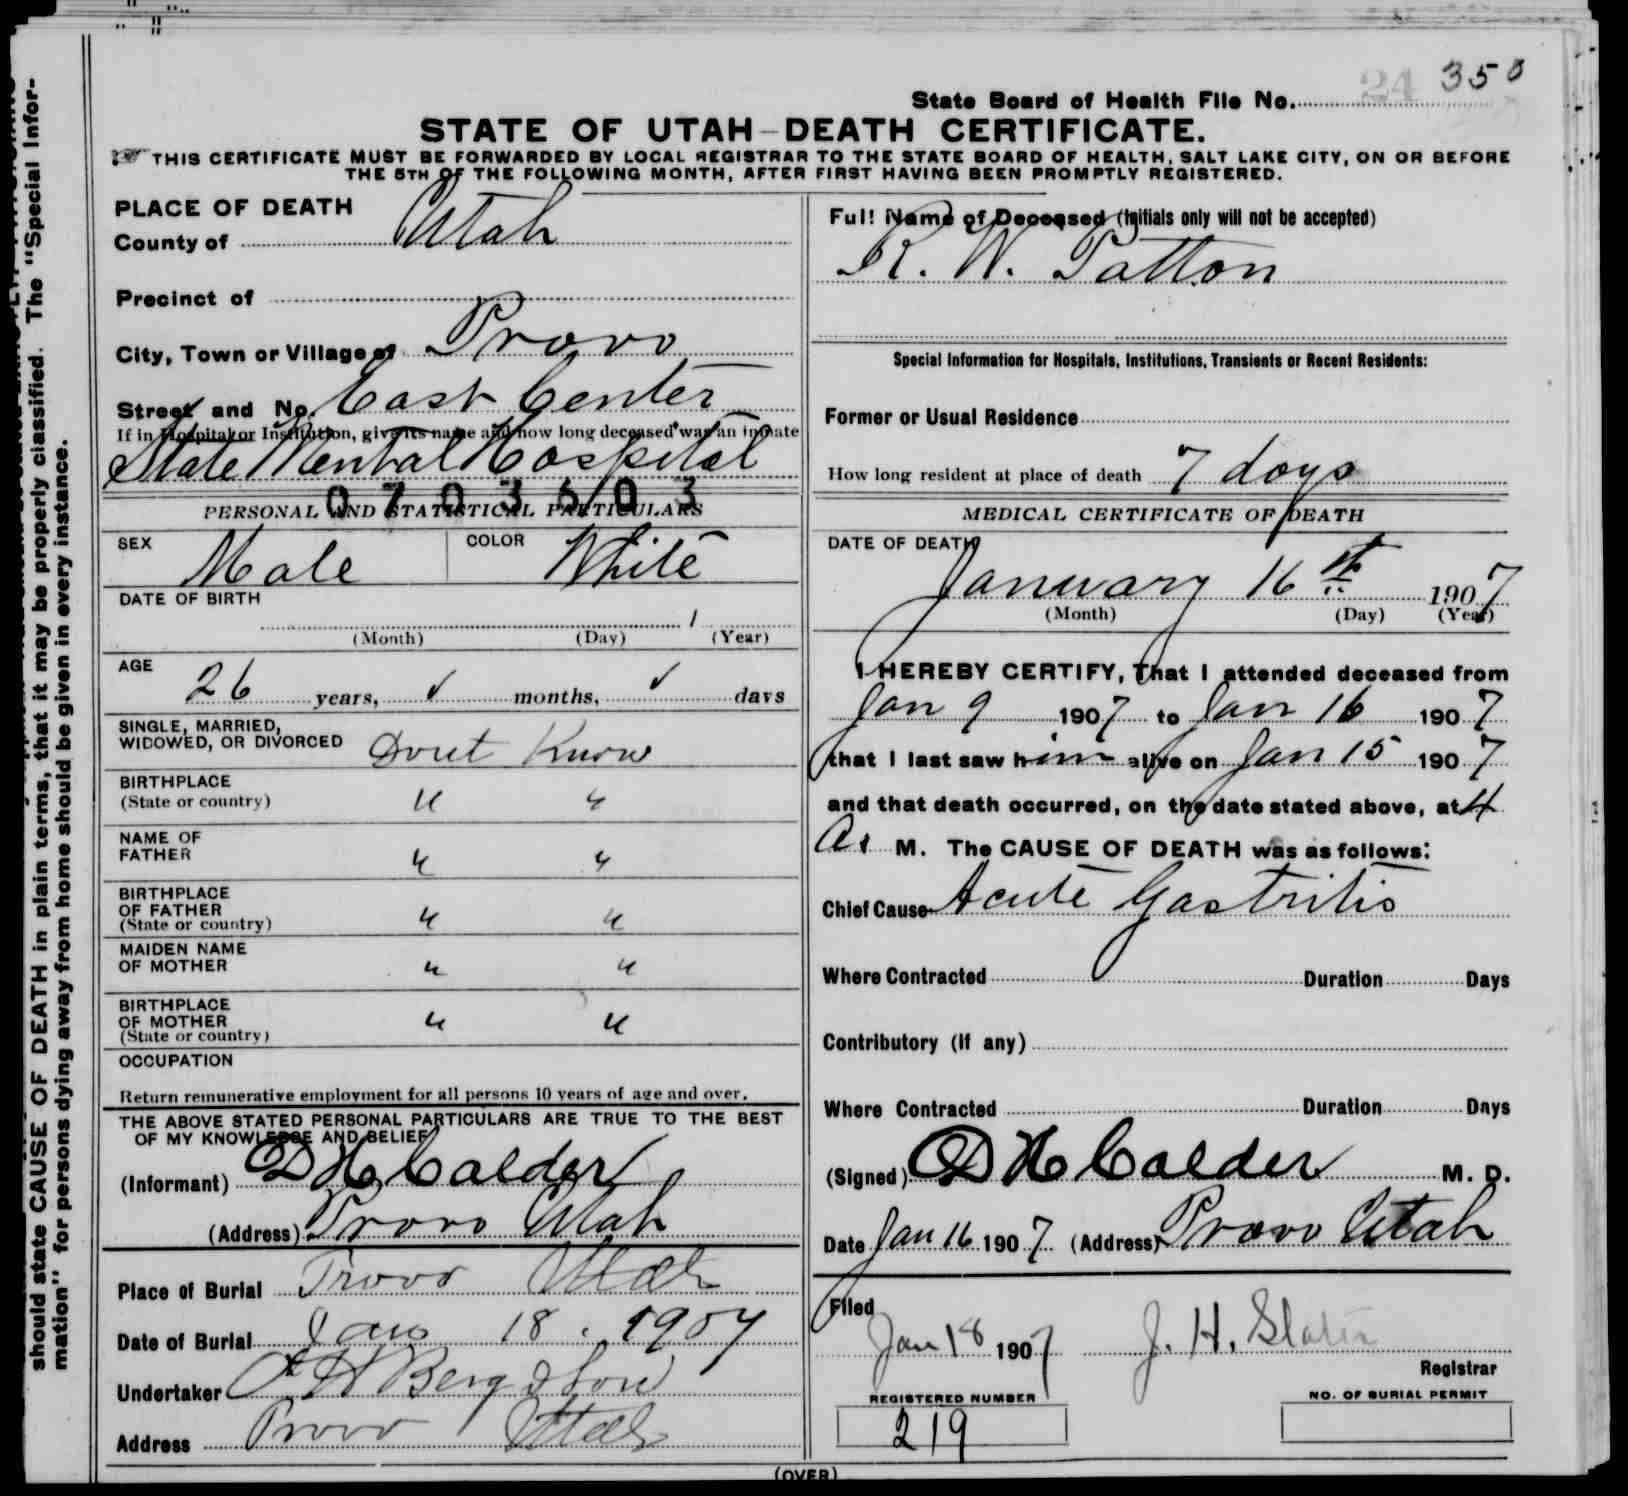 24 350
State Board of Health File No.
STATE OF UTAH—DEATH CERTIFICATE.
THIS CERTIFICATE MUST BE FORWARDED BY LOCAL REGISTRAR TO THE STATE BOARD OF HEALTH, SALT LAKE CITY, ON OR BEFORE
THE 5TH OF THE FOLLOWING MONTH, AFTER FIRST HAVING BEEN PROMPTLY REGISTERED.
PLACE OF DEATH
County of Utah
Precinct of
City, Town or Village of Provo
Street and No. East Center
If in Hospital or Institution, give its name and how long deceased was an inmate
State Mental Hospital
0703503
PERSONAL AND STATISTICAL PARTICULARS
SEX Male COLOR White
DATE OF BIRTH
1
(Month) (Day) (Year)
AGE
26 years, ✓ months, ✓ days
SINGLE, MARRIED,
WIDOWED, OR DIVORCED Dont Know
BIRTHPLACE
(State or country) " "
NAME OF
FATHER " "
BIRTHPLACE
OF FATHER
(State or country) " "
MAIDEN NAME
OF MOTHER " "
BIRTHPLACE
OF MOTHER
(State or country) " "
OCCUPATION
Return remunerative employment for all persons 10 years of age and over.
THE ABOVE STATED PERSONAL PARTICULARS ARE TRUE TO THE BEST
OF MY KNOWLEDGE AND BELIEF
(Informant) D H Calder
(Address) Provo Utah
Place of Burial Provo Utah
Date of Burial Jan 18, 1907
Undertaker O H Berg & Son
Address Provo Utah
Full Name of Deceased (Initials only will not be accepted)
R. W. Patton
Special Information for Hospitals, Institutions, Transients or Recent Residents:
Former or Usual Residence
How long resident at place of death 7 days
MEDICAL CERTIFICATE OF DEATH
DATE OF DEATH
January 16th 1907
(Month) (Day) (Year)
I HEREBY CERTIFY, That I attended deceased from
Jan 9 1907 to Jan 16 1907
that I last saw him alive on Jan 15 1907
and that death occurred, on the date stated above, at 4
A. M. The CAUSE OF DEATH was as follows:
Chief Cause Acute Gastritis
Where Contracted Duration Days
Contributory (If any)
Where Contracted Duration Days
(Signed) D H Calder M. D.
Date Jan 16 1907 (Address) Provo Utah
Filed
Jan 18 1907 J. H. Slater
Registrar
REGISTERED NUMBER NO. OF BURIAL PERMIT
219
(OVER)
should state CAUSE OF DEATH in plain terms, that it may be properly classified. The "Special Infor-
mation" for persons dying away from home should be given in every instance.